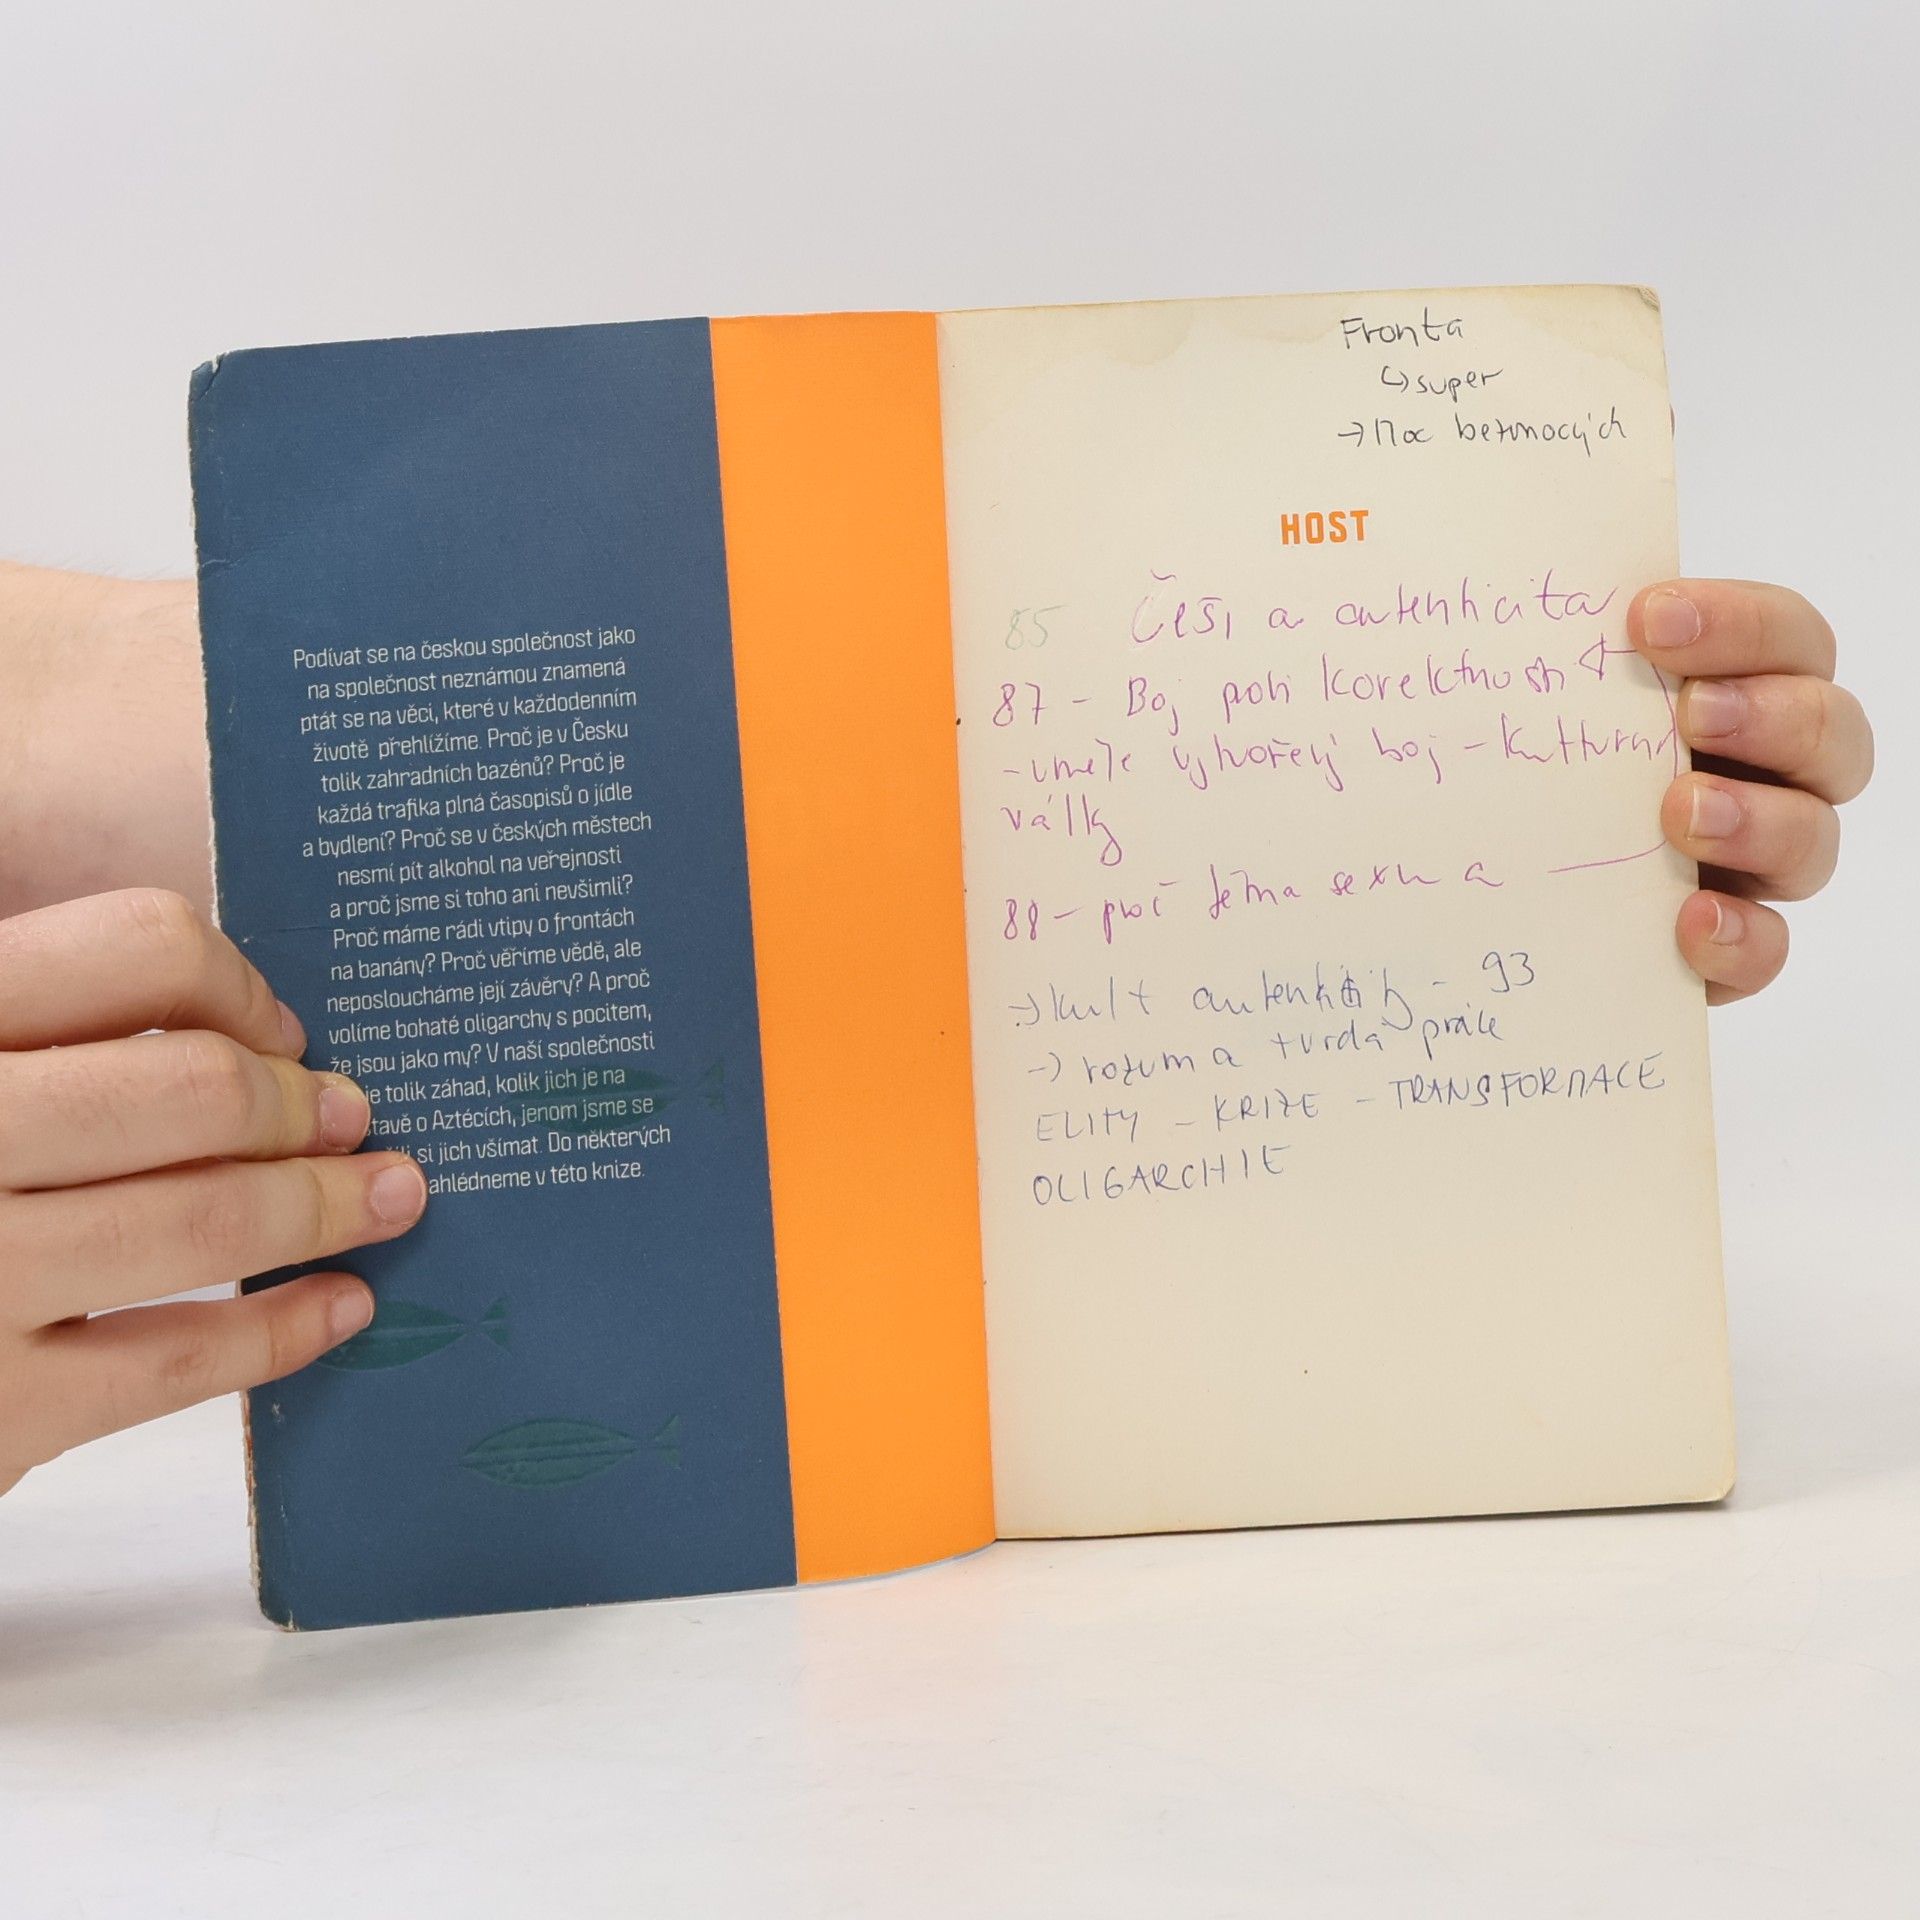 Podívat se na českou společnost jako
na společnost neznámou znamená
ptát se na věci, které v každodenním
životě přehlížíme. Proč je v Česku
tolik zahradních bazénů? Proč je
každá trafika plná časopisů o jídle
a bydlení? Proč se v českých městech
nesmí pít alkohol na veřejnosti
a proč jsme si toho ani nevšimli?
Proč máme rádi vtipy o frontách
na banány? Proč věříme vědě, ale
neposloucháme její závěry? A proč
volíme bohaté oligarchy s pocitem,
že jsou jako my? V naší společnosti
je tolik záhad, kolik jich je na
stavě o Aztécích, jenom jsme se
si jich všímat. Do některých
ahlédneme v této knize.
Fronta
↳ super
→ Moc bezmocných
HOST
85 Češi a autenticita
87 - Boj proti korektnosti
- uměle vytvořený boj - kulturní
války
88 - proč téma sexu a
→ kult autenticity - 93
→ rozum a tvrdá práce
ELITY - KRIZE - TRANSFORMACE
OLIGARCHIE